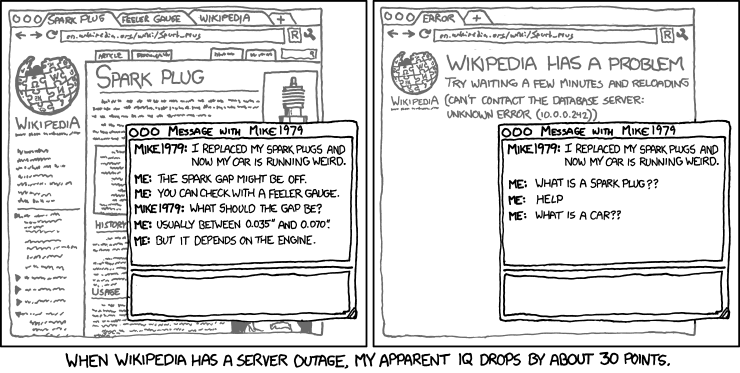 SPARK PLUG
FEELER GAUGE
WIKIPEDIA
+
en.wikipedia.org/wiki/Spark_plug
R
ARTICLE
SPARK PLUG
WIKIPEDIA
HISTORY
USAGE
MESSAGE WITH MIKE1979
MIKE1979: I REPLACED MY SPARK PLUGS AND
NOW MY CAR IS RUNNING WEIRD.
ME: THE SPARK GAP MIGHT BE OFF.
ME: YOU CAN CHECK WITH A FEELER GAUGE.
MIKE1979: WHAT SHOULD THE GAP BE?
ME: USUALLY BETWEEN 0.035" AND 0.070".
ME: BUT IT DEPENDS ON THE ENGINE.
ERROR
+
en.wikipedia.org/wiki/Spark_plug
R
WIKIPEDIA HAS A PROBLEM
TRY WAITING A FEW MINUTES AND RELOADING
WIKIPEDIA
(CAN'T CONTACT THE DATABASE SERVER:
UNKNOWN ERROR (10.0.0.242))
MESSAGE WITH MIKE1979
MIKE1979: I REPLACED MY SPARK PLUGS AND
NOW MY CAR IS RUNNING WEIRD.
ME: WHAT IS A SPARK PLUG??
ME: HELP
ME: WHAT IS A CAR??
WHEN WIKIPEDIA HAS A SERVER OUTAGE, MY APPARENT IQ DROPS BY ABOUT 30 POINTS.